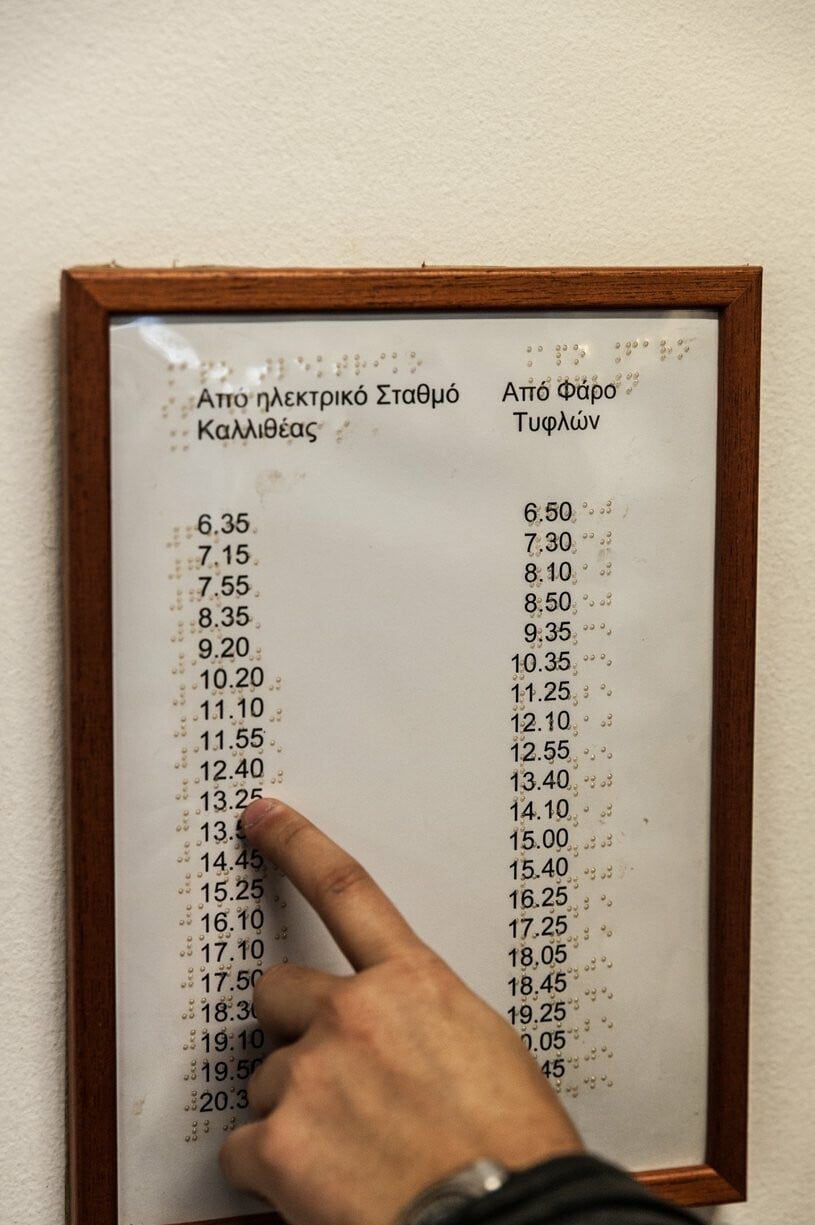 Από ηλεκτρικό Σταθμό
Καλλιθέας
6.35
7.15
7.55
8.35
9.20
10.20
11.10
11.55
12.40
13.25
14.45
15.25
16.10
17.10
17.50
19.10
Από Φάρο
Τυφλών
6.50
7.30
8.10
8.50
9.35
10.35
11.25
12.10
12.55
13.40
14.10
15.00
15.40
16.25
17.25
18.05
18.45
19.25